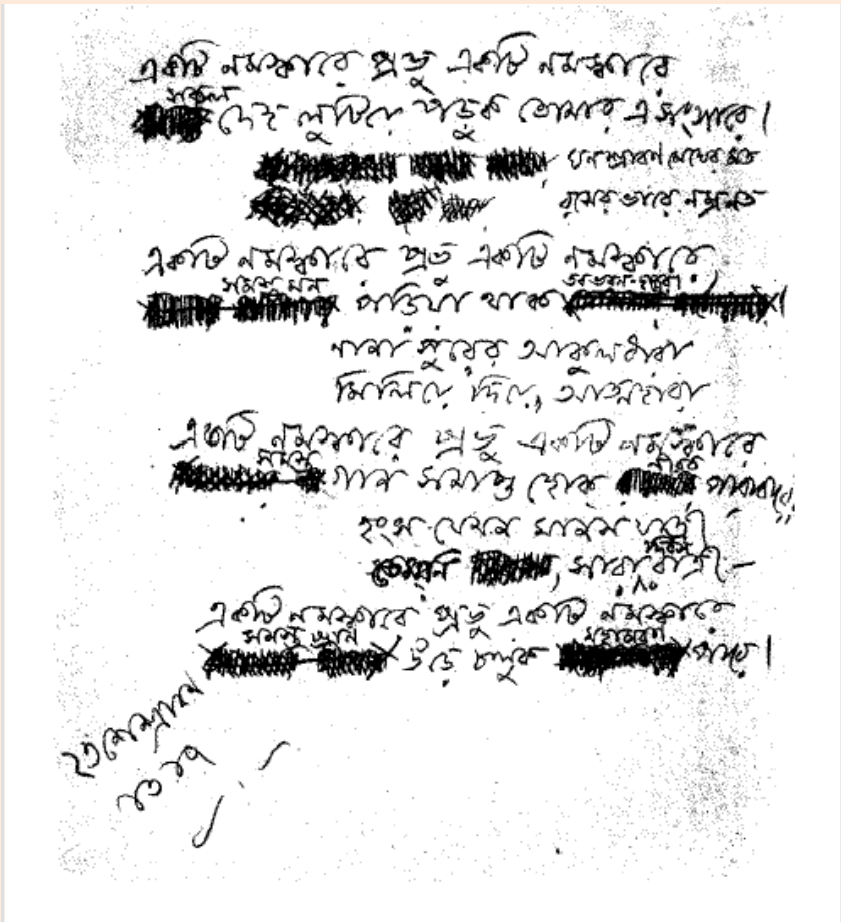 একটি নমস্কারে প্রভু একটি নমস্কারে
সকল দেহ লুটিয়ে পড়ুক তোমার এ সংসারে।
ঘন শ্রাবণ মেঘের মত
রসের ভারে নম্রনত
একটি নমস্কারে প্রভু একটি নমস্কারে
সমস্ত মন পড়িয়া থাক্
নানা সুরের আকুলধারা
মিলিয়ে দিয়ে, আত্মহারা
একটি নমস্কারে প্রভু একটি নমস্কারে
সমস্ত গান সমাপ্ত হোক নীরব পারাবারে
হংস যেমন মানসযাত্রী
তেমনি সারা দিবস রাত্রি
একটি নমস্কারে প্রভু একটি নমস্কারে
সমস্ত প্রাণ উড়ে চলুক মহামরণ পারে।
২৩শে শ্রাবণ
১৩১৭